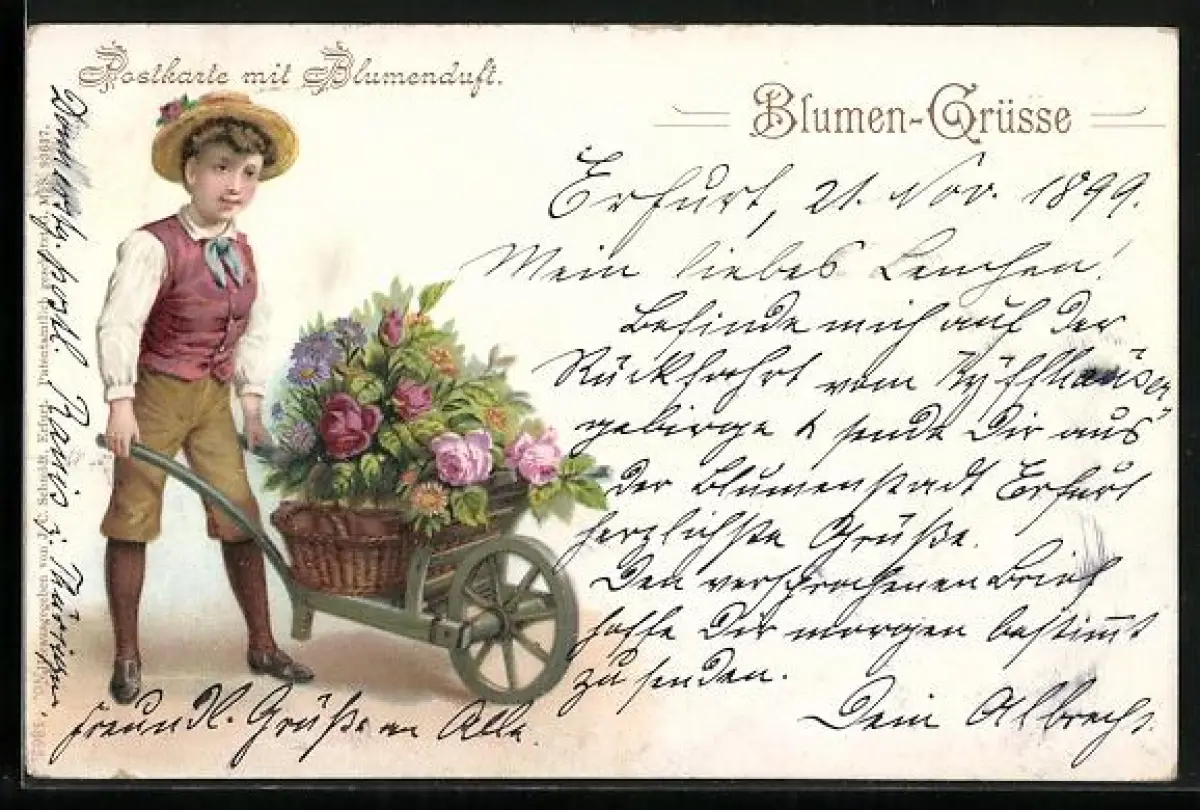 Postkarte mit Blumenduft.
Blumen-Grüsse
Erfurt, 21. Nov. 1899.
Mein liebes Lenchen!
Befinde mich auf der
Rückfahrt vom Kyffhäuser
gebirge & sende Dir aus
der Blumenstadt Erfurt
herzlichste Grüße.
Den versprochenen Brief
hoffe Dir morgen bestimmt
zu senden.
Dein Albrecht.
freundl. Grüße an Alle.
postl. Ranis i. Thüringen
herausgegeben von J. C. Schmidt, Erfurt. Patentamtlich